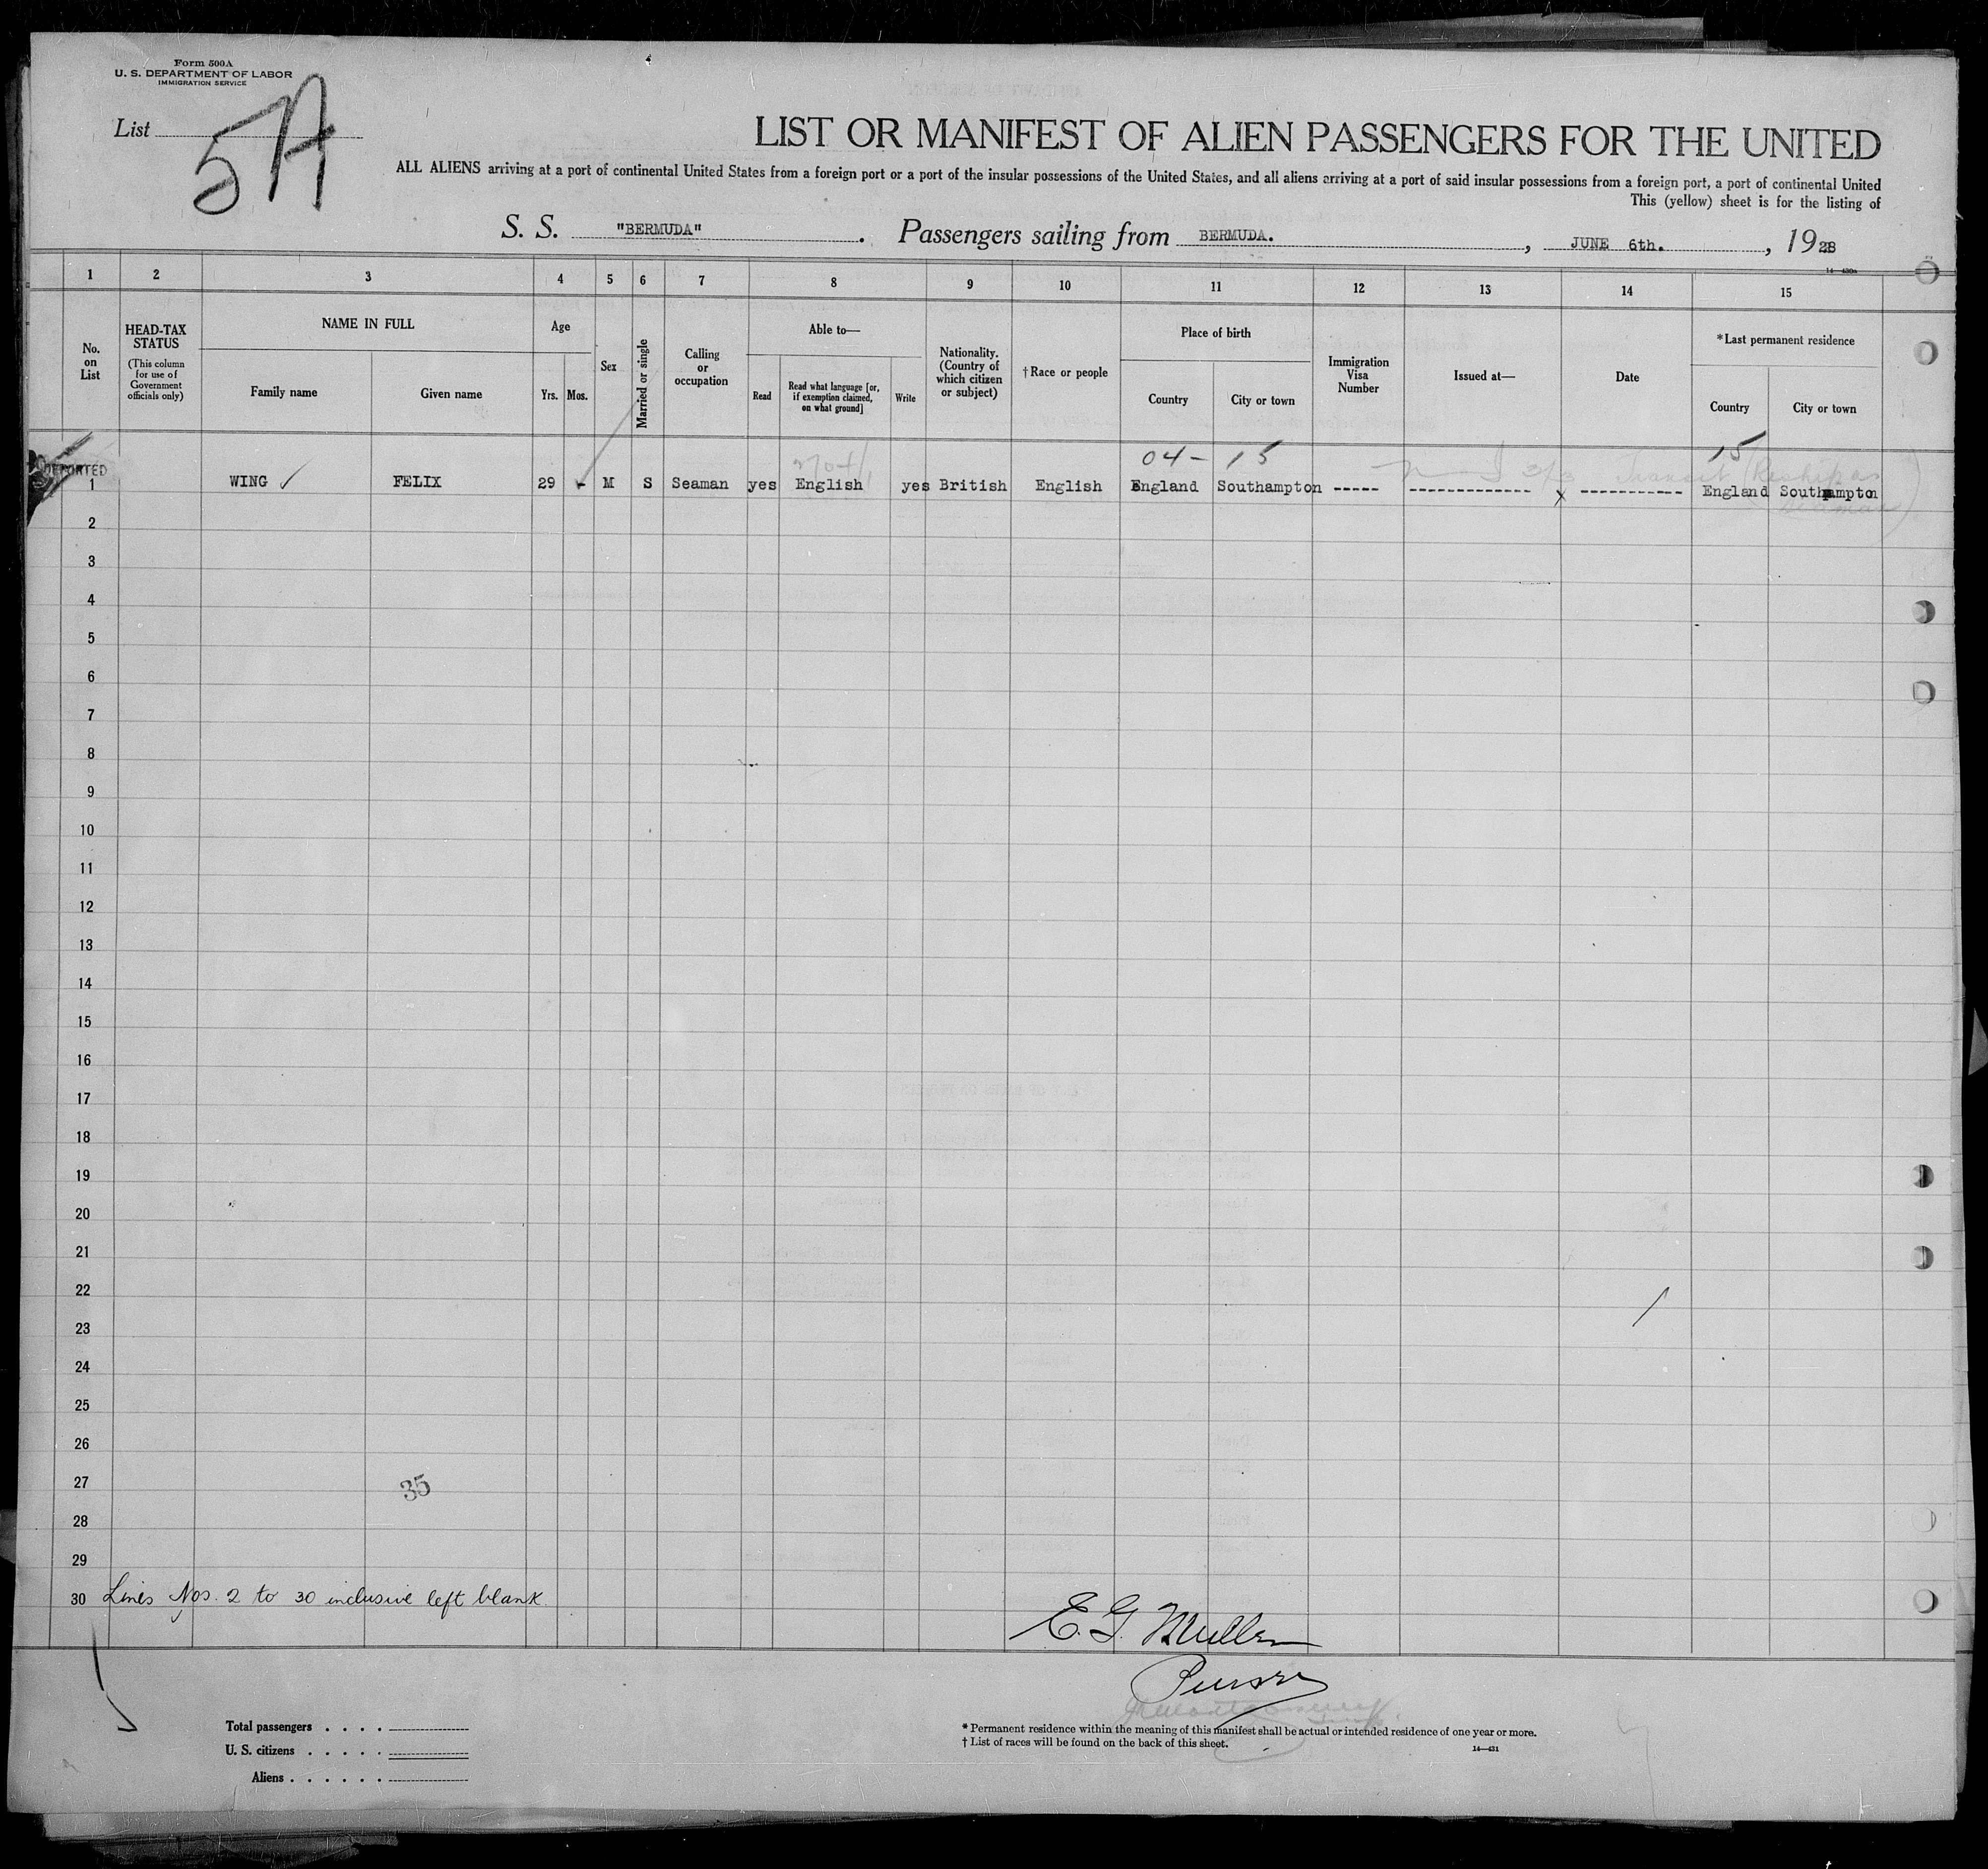 Form 500A
U. S. DEPARTMENT OF LABOR
IMMIGRATION SERVICE
List 5A
LIST OR MANIFEST OF ALIEN PASSENGERS FOR THE UNITED
ALL ALIENS arriving at a port of continental United States from a foreign port or a port of the insular possessions of the United States, and all aliens arriving at a port of said insular possessions from a foreign port, a port of continental United
This (yellow) sheet is for the listing of
S. S. "BERMUDA". Passengers sailing from BERMUDA., JUNE 6th., 1928
1 2 3 4 5 6 7 8 9 10 11 12 13 14 15
No. on List
HEAD-TAX STATUS
(This column for use of Government officials only)
NAME IN FULL
Family name
Given name
Age
Yrs. Mos.
Sex
Married or single
Calling or occupation
Able to—
Read
Read what language [or, if exemption claimed, on what ground]
Write
Nationality. (Country of which citizen or subject)
†Race or people
Place of birth
Country
City or town
Immigration Visa Number
Issued at—
Date
*Last permanent residence
Country
City or town
04- 15 15
DEPORTED
1 WING ✓ FELIX 29 - M S Seaman yes English yes British English England Southampton ----- ------------- x ----------- England Southampton
Transit (Reship as
seaman)
2
3
4
5
6
7
8
9
10
11
12
13
14
15
16
17
18
19
20
21
22
23
24
25
26
27
35
28
29
30 Lines Nos. 2 to 30 inclusive left blank
E. G. Mullen
Purser
Total passengers . . . .
U. S. citizens . . . . .
Aliens . . . . . .
* Permanent residence within the meaning of this manifest shall be actual or intended residence of one year or more.
† List of races will be found on the back of this sheet.
14—431